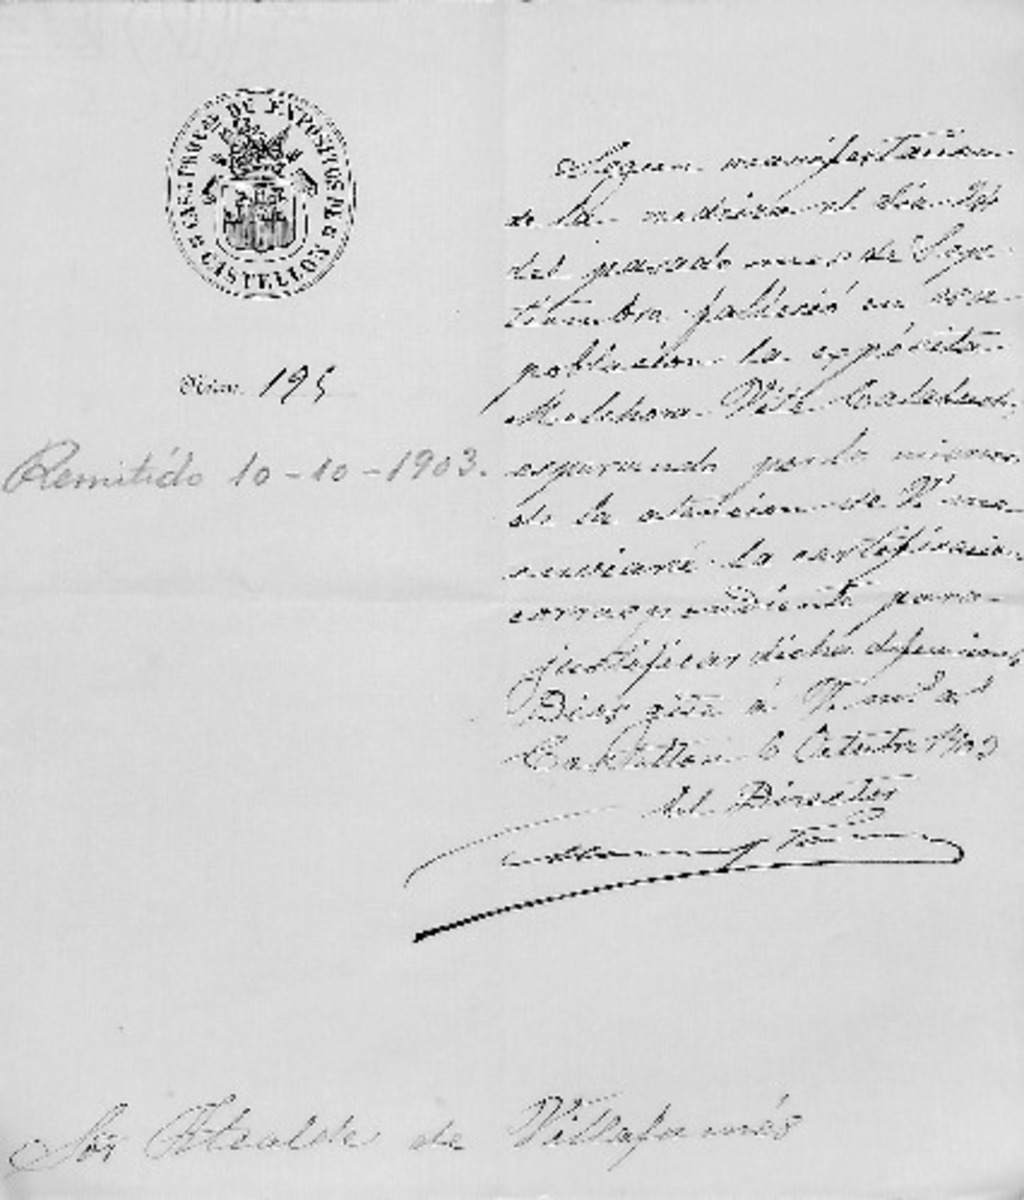 CASA PROV.AL DE EXPÓSITOS DE
CASTELLON
Núm. 195
Remitido 10-10-1903.
Segun manifestacion
de la nodriza el dia
del pasado mes de Sep-
tiembre falleció en esa
poblacion la expósita
Melchora
esperando por lo mismo
de la atencion de V. me
enviará la certificacion
correspondiente para
justificar dicha defuncion.
Dios gũe á V. m.s a.s
Castellon 6 Octubre 1903
El Director
Sor Alcalde de Villafamés